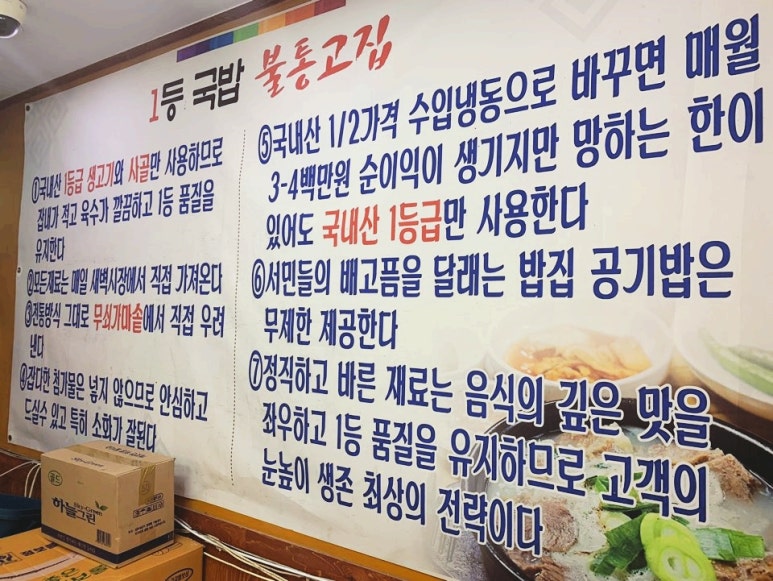 1등 국밥 불통고집
①국내산 1등급 생고기와 사골만 사용하므로
잡내가 적고 육수가 깔끔하고 1등 품질을
유지한다
②모든재료는 매일 새벽시장에서 직접 가져온다
③전통방식 그대로 무쇠가마솥에서 직접 우려
낸다
④잡다한 첨가물은 넣지 않으므로 안심하고
드실수 있고 특히 소화가 잘된다
⑤국내산 1/2가격 수입냉동으로 바꾸면 매월
3-4백만원 순이익이 생기지만 망하는 한이
있어도 국내산 1등급만 사용한다
⑥서민들의 배고픔을 달래는 밥집 공기밥은
무제한 제공한다
⑦정직하고 바른 재료는 음식의 깊은 맛을
좌우하고 1등 품질을 유지하므로 고객의
눈높이 생존 최상의 전략이다
하늘그린